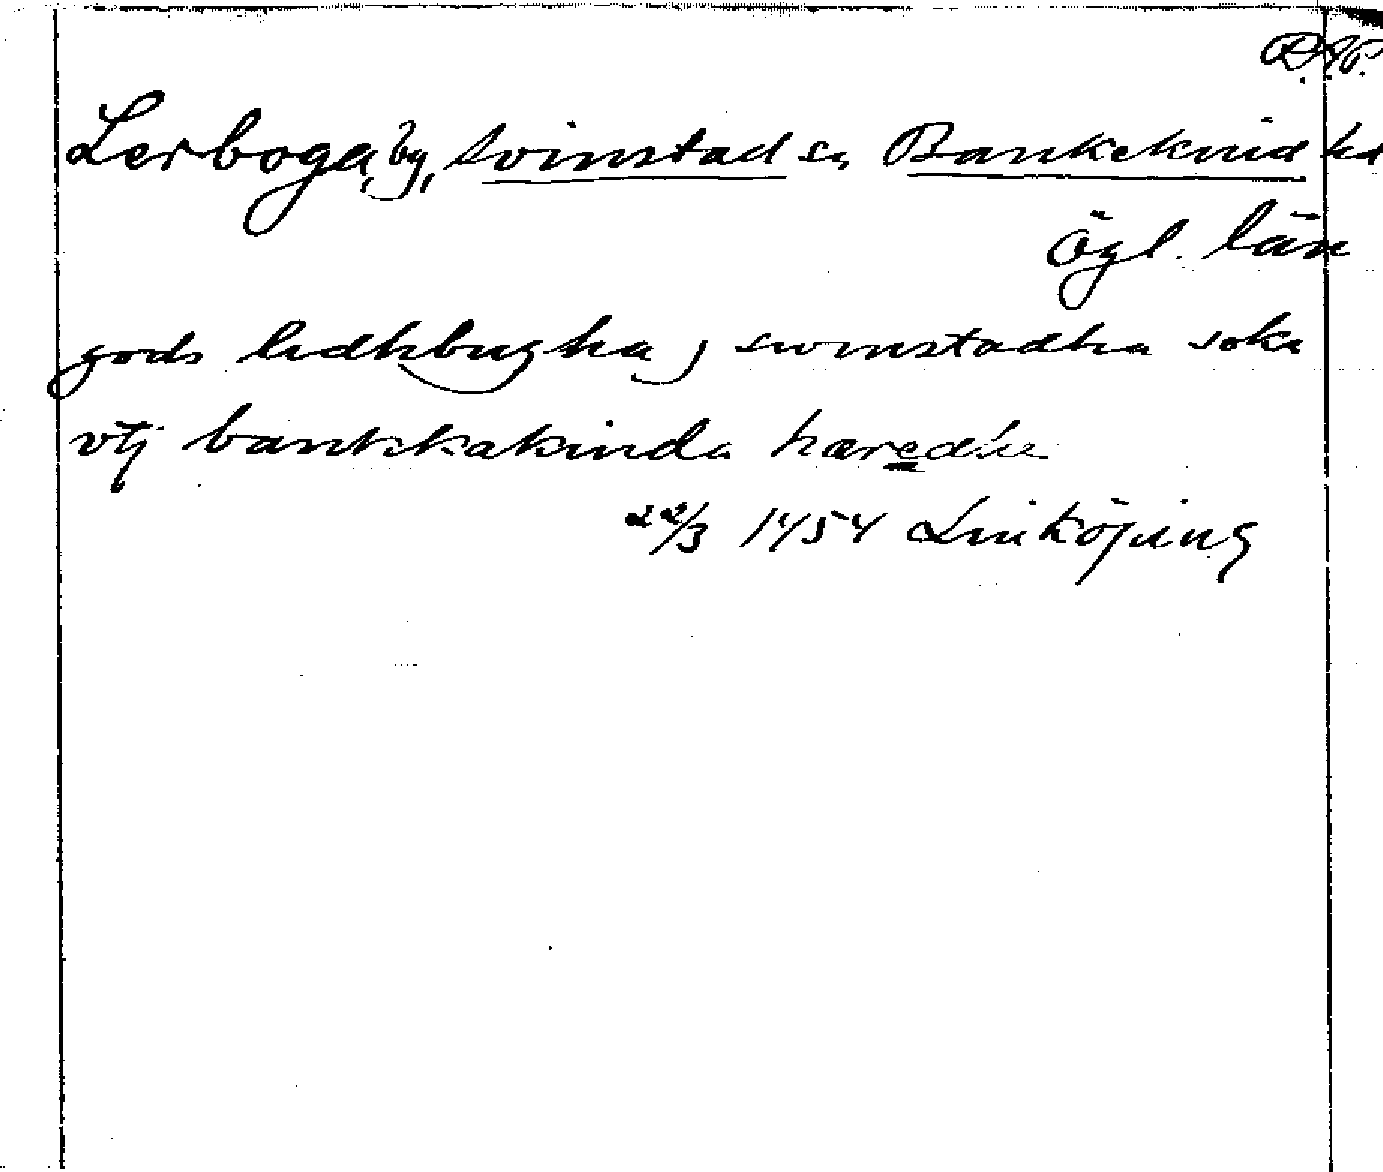 Lerboga, by, Svinstad sn Bankekind hd
Ögl. län
gods ledhbugha j swinstadha sokn
vtj bankkakinda hæredhe
22/3 1454 Linköping